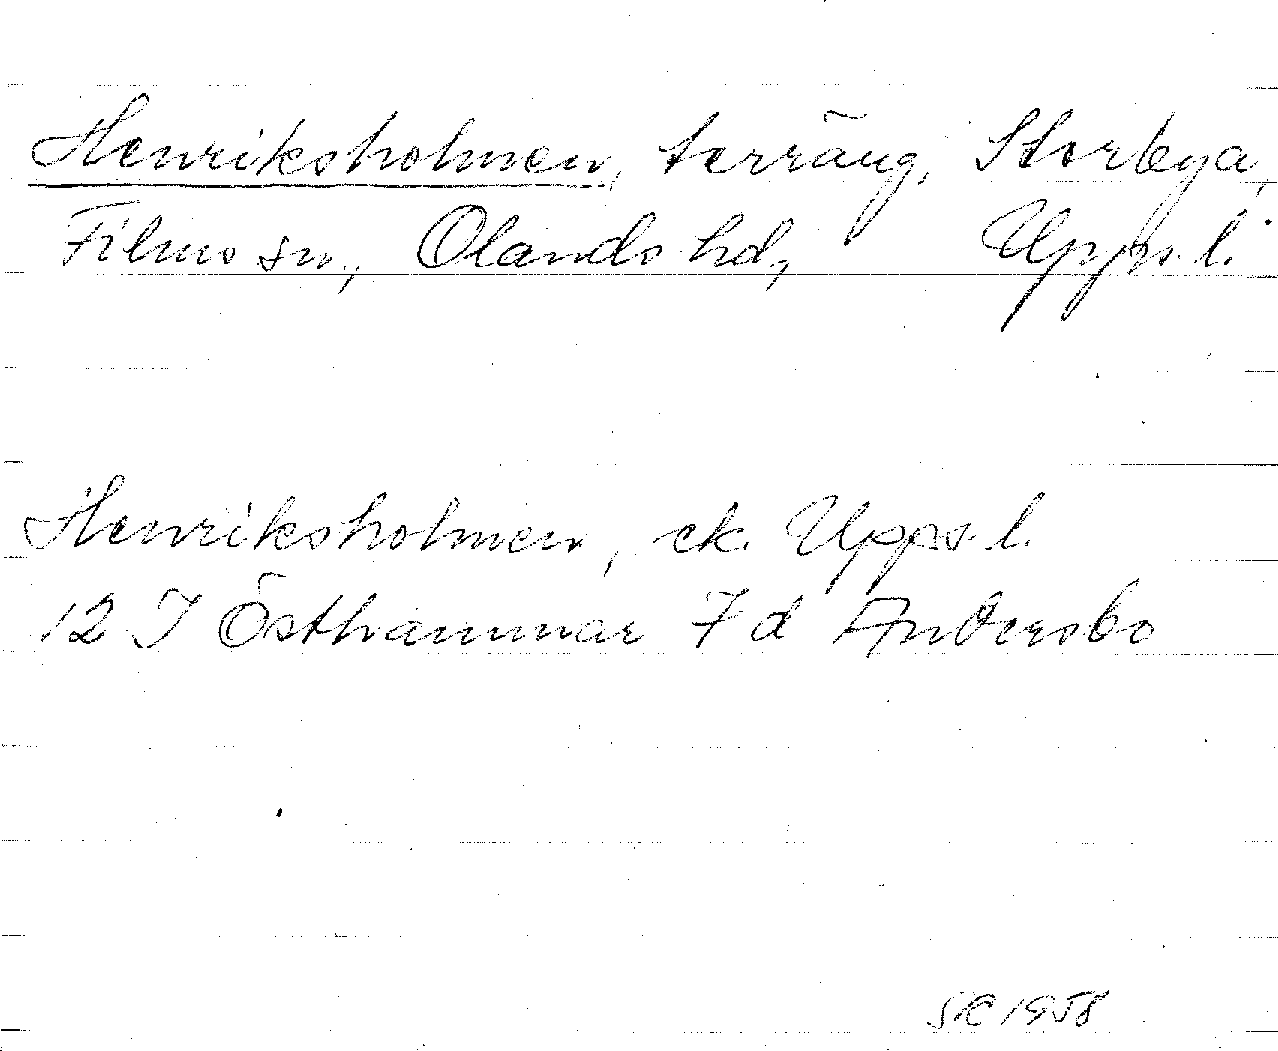 Henriksholmen, terräng, Storbyn,
Films sn, Olands hd, Upps. l.
Henriksholmen, ek. Upps. l.
12 I Östhammar 7d Andersbo
1958